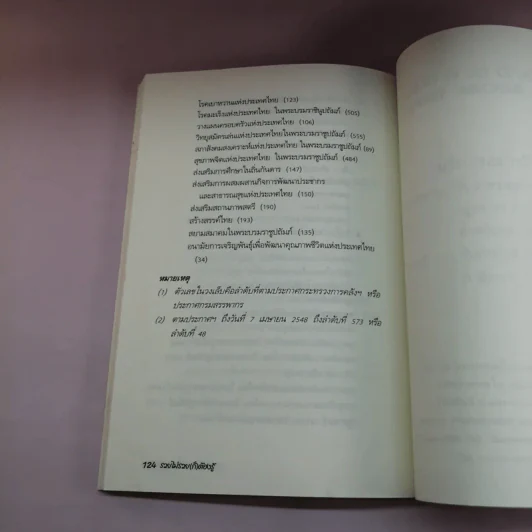 โรคเบาหวานแห่งประเทศไทย (123)
โรคมะเร็งแห่งประเทศไทย ในพระบรมราชินูปถัมภ์ (505)
วางแผนครอบครัวแห่งประเทศไทย (106)
วิทยุสมัครเล่นแห่งประเทศไทยในพระบรมราชูปถัมภ์ (555)
สภาสังคมสงเคราะห์แห่งประเทศไทย ในพระบรมราชูปถัมภ์ (69)
สุขภาพจิตแห่งประเทศไทย ในพระบรมราชูปถัมภ์ (484)
ส่งเสริมการศึกษาในถิ่นกันดาร (147)
ส่งเสริมการผสมผสานกิจการพัฒนาประชากร
และสาธารณสุขแห่งประเทศไทย (150)
ส่งเสริมสถานภาพสตรี (190)
สร้างสรรค์ไทย (193)
สยามสมาคมในพระบรมราชูปถัมภ์ (135)
อนามัยการเจริญพันธุ์เพื่อพัฒนาคุณภาพชีวิตแห่งประเทศไทย
(34)
หมายเหตุ
(1) ตัวเลขในวงเล็บคือลำดับที่ตามประกาศกระทรวงการคลังฯ หรือ
ประกาศกรมสรรพากร
(2) ตามประกาศฯ ถึงวันที่ 7 เมษายน 2548 ถึงลำดับที่ 573 หรือ
ลำดับที่ 48
124 รวยไม่รวย(ก็)ต้องรู้